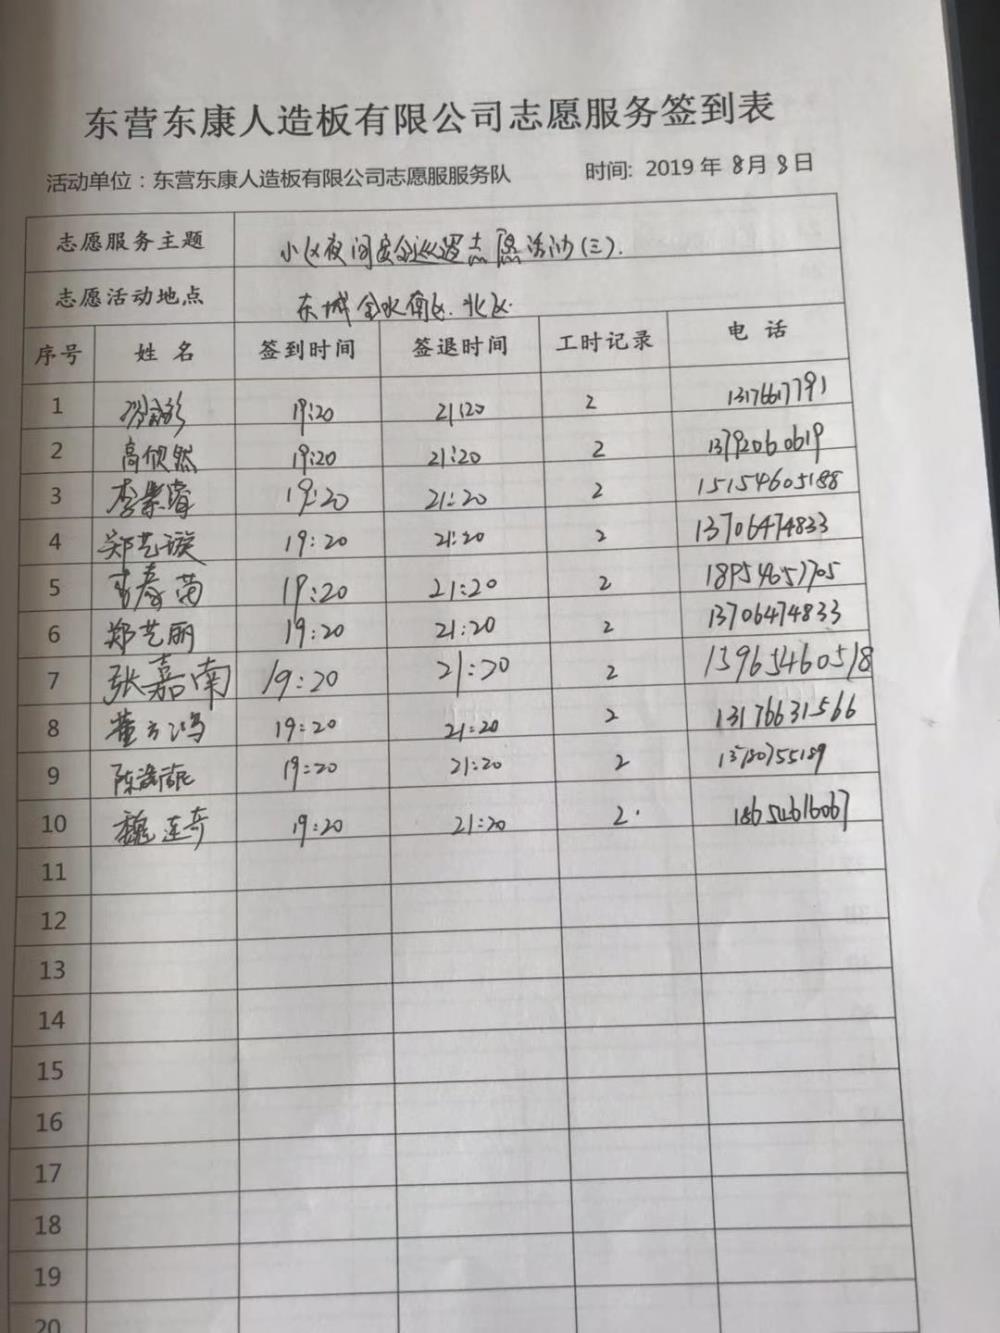 东营东康人造板有限公司志愿服务签到表
活动单位：东营东康人造板有限公司志愿服服务队 时间: 2019 年 8 月 8 日
志愿服务主题 小区夜间安全巡逻志愿活动(三).
志愿活动地点 东城金水南区.北区.
序号 姓名 签到时间 签退时间 工时记录 电话
1 19:20 21:20 2 13176617791
2 高欣然 19:20 21:20 2 13792060619
3 李紫睿 19:20 21:20 2 15154605188
4 郑艺璇 19:20 21:20 2 13706474833
5 李春苗 19:20 21:20 2 18954657705
6 郑艺丽 19:20 21:20 2 13706474833
7 张嘉南 19:20 21:20 2 13965460518
8 董方鸿 19:20 21:20 2 13176631566
9 19:20 21:20 2
10 魏莲奇 19:20 21:20 2. 18654616067
11
12
13
14
15
16
17
18
19
20